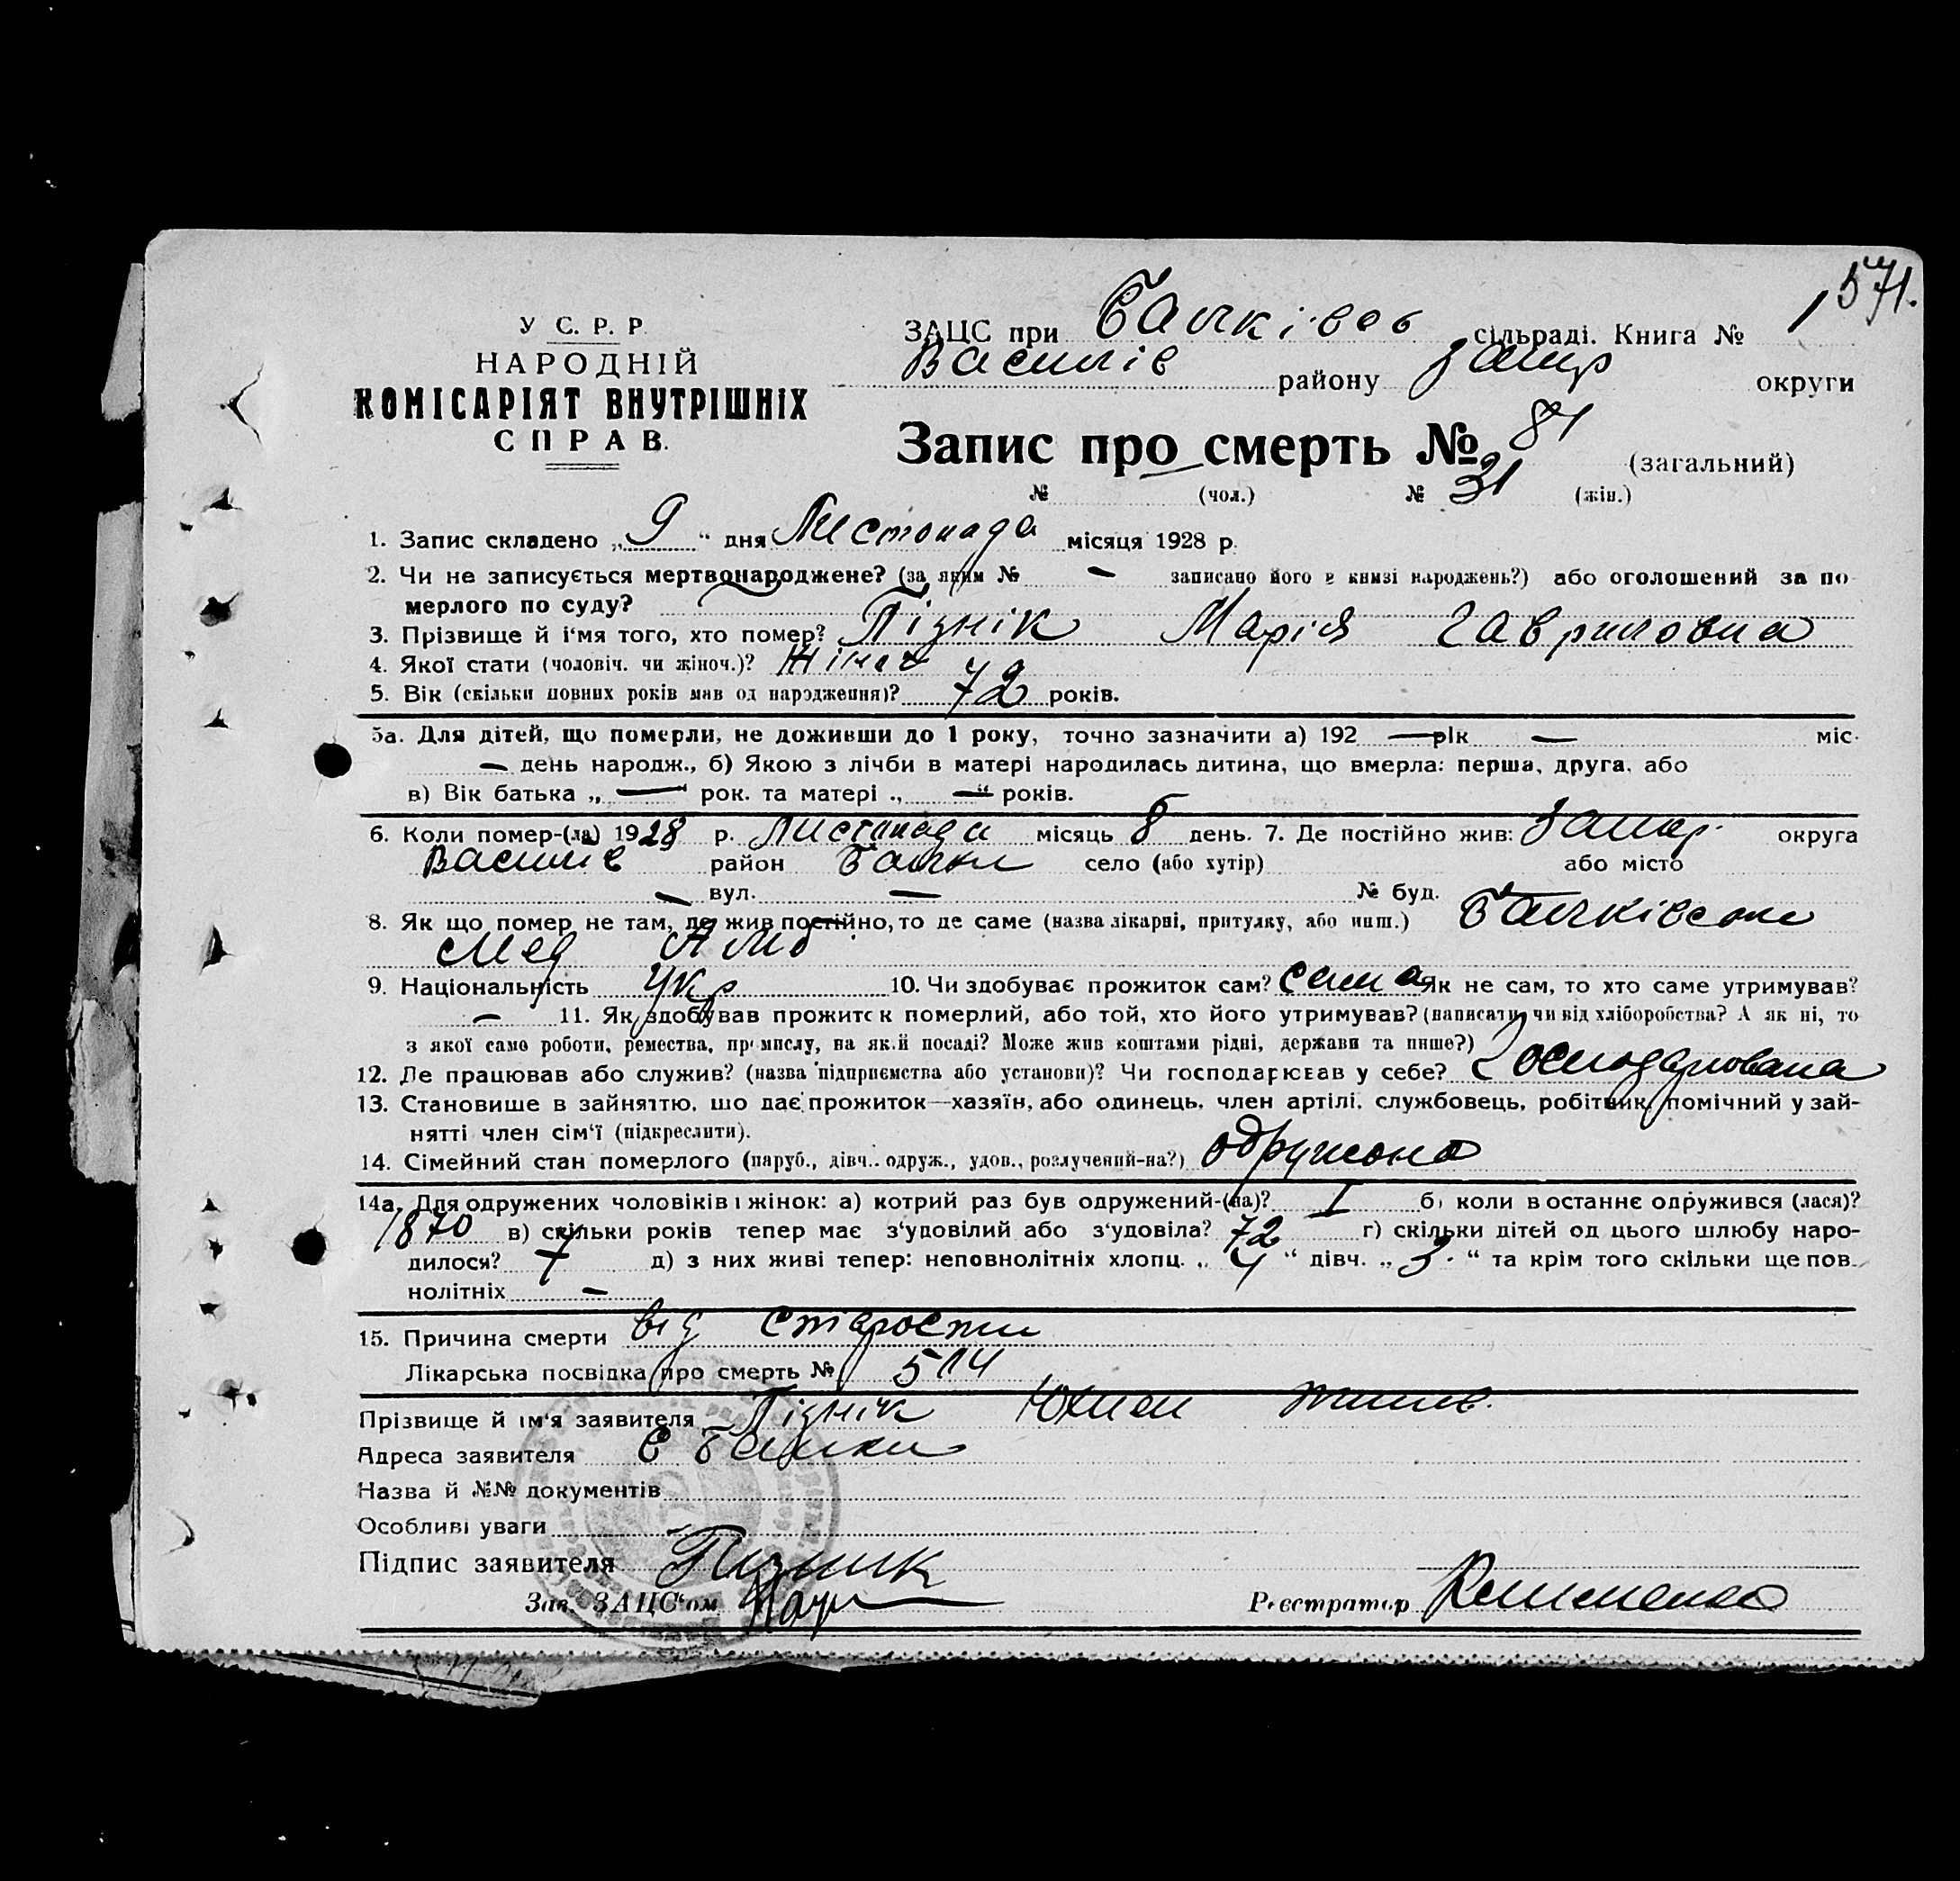 571.
У С. Р. Р.
НАРОДНІЙ
КОМІСАРІЯТ ВНУТРІШНІХ
СПРАВ.
ЗАЦС при Балківсь сільраді. Книга № 1
Василів району Запор округи
Запис про смерть № 81 (загальний)
№ (чол.) № 31 (жін.)
1. Запис складено „9" дня Листопада місяця 1928 р.
2. Чи не записується мертвонароджене? (за яким № — записано його в книзі народжень?) або оголошений за по
мерлого по суду?
3. Прізвище й і'мя того, хто помер? Пізнік Марія Гавриловна
4. Якої стати (чоловіч. чи жіноч.)? Жіноч
5. Вік (скільки повних років мав од народження)? 72 років.
5а. Для дітей, що померли, не доживши до 1 року, точно зазначити а) 192 — рік — міс.
— день народж., б) Якою з лічби в матері народилась дитина, що вмерла: перша, друга, або
в) Вік батька „ — " рок. та матері „ — " років.
6. Коли помер-(ла) 1928 р. Листопада місяць 8 день. 7. Де постійно жив: Запор. округа
Василів район Балки село (або хутір) або місто
— вул. — № буд.
8. Як що помер не там, де жив постійно, то де саме (назва лікарні, притулку, або инш.) Балківсьом
Мед Амб.
9. Національність Укр 10. Чи здобуває прожиток сам? сама Як не сам, то хто саме утримував?
— 11. Як здобував прожиток померлий, або той, хто його утримував? (написати, чи від хліборобства? А як ні, то
з якої само роботи, ремества, промислу, на якій посаді? Може жив коштами рідні, держави та инше?)
12. Де працював або служив? (назва підприємства або установи)? Чи господарював у себе? Господарювала
13. Становище в зайняттю, що дає прожиток—хазяїн, або одинець, член артілі, службовець, робітник, помічний у зай-
нятті член сім'ї (підкреслити).
14. Сімейний стан померлого (паруб., дівч., одруж., удов., розлучений-на?) одружона
14а. Для одружених чоловіків і жінок: а) котрий раз був одружений-(на)? I б) коли в останнє одружився (лася)?
1870 в) скільки років тепер має з'удовілий або з'удовіла? 72 г) скільки дітей од цього шлюбу наро-
дилося? 7 д) з них живі тепер: неповнолітніх хлопц. „4" дівч. „3." та крім того скільки ще пов-
нолітніх —
15. Причина смерти від старости
Лікарська посвідка про смерть № 514
Прізвище й ім'я заявителя Пізнік
Адреса заявителя с Балки
Назва й №№ документів
Особливі уваги
Підпис заявителя Пизник
Зав. ЗАЦС'ом
Реєстратор